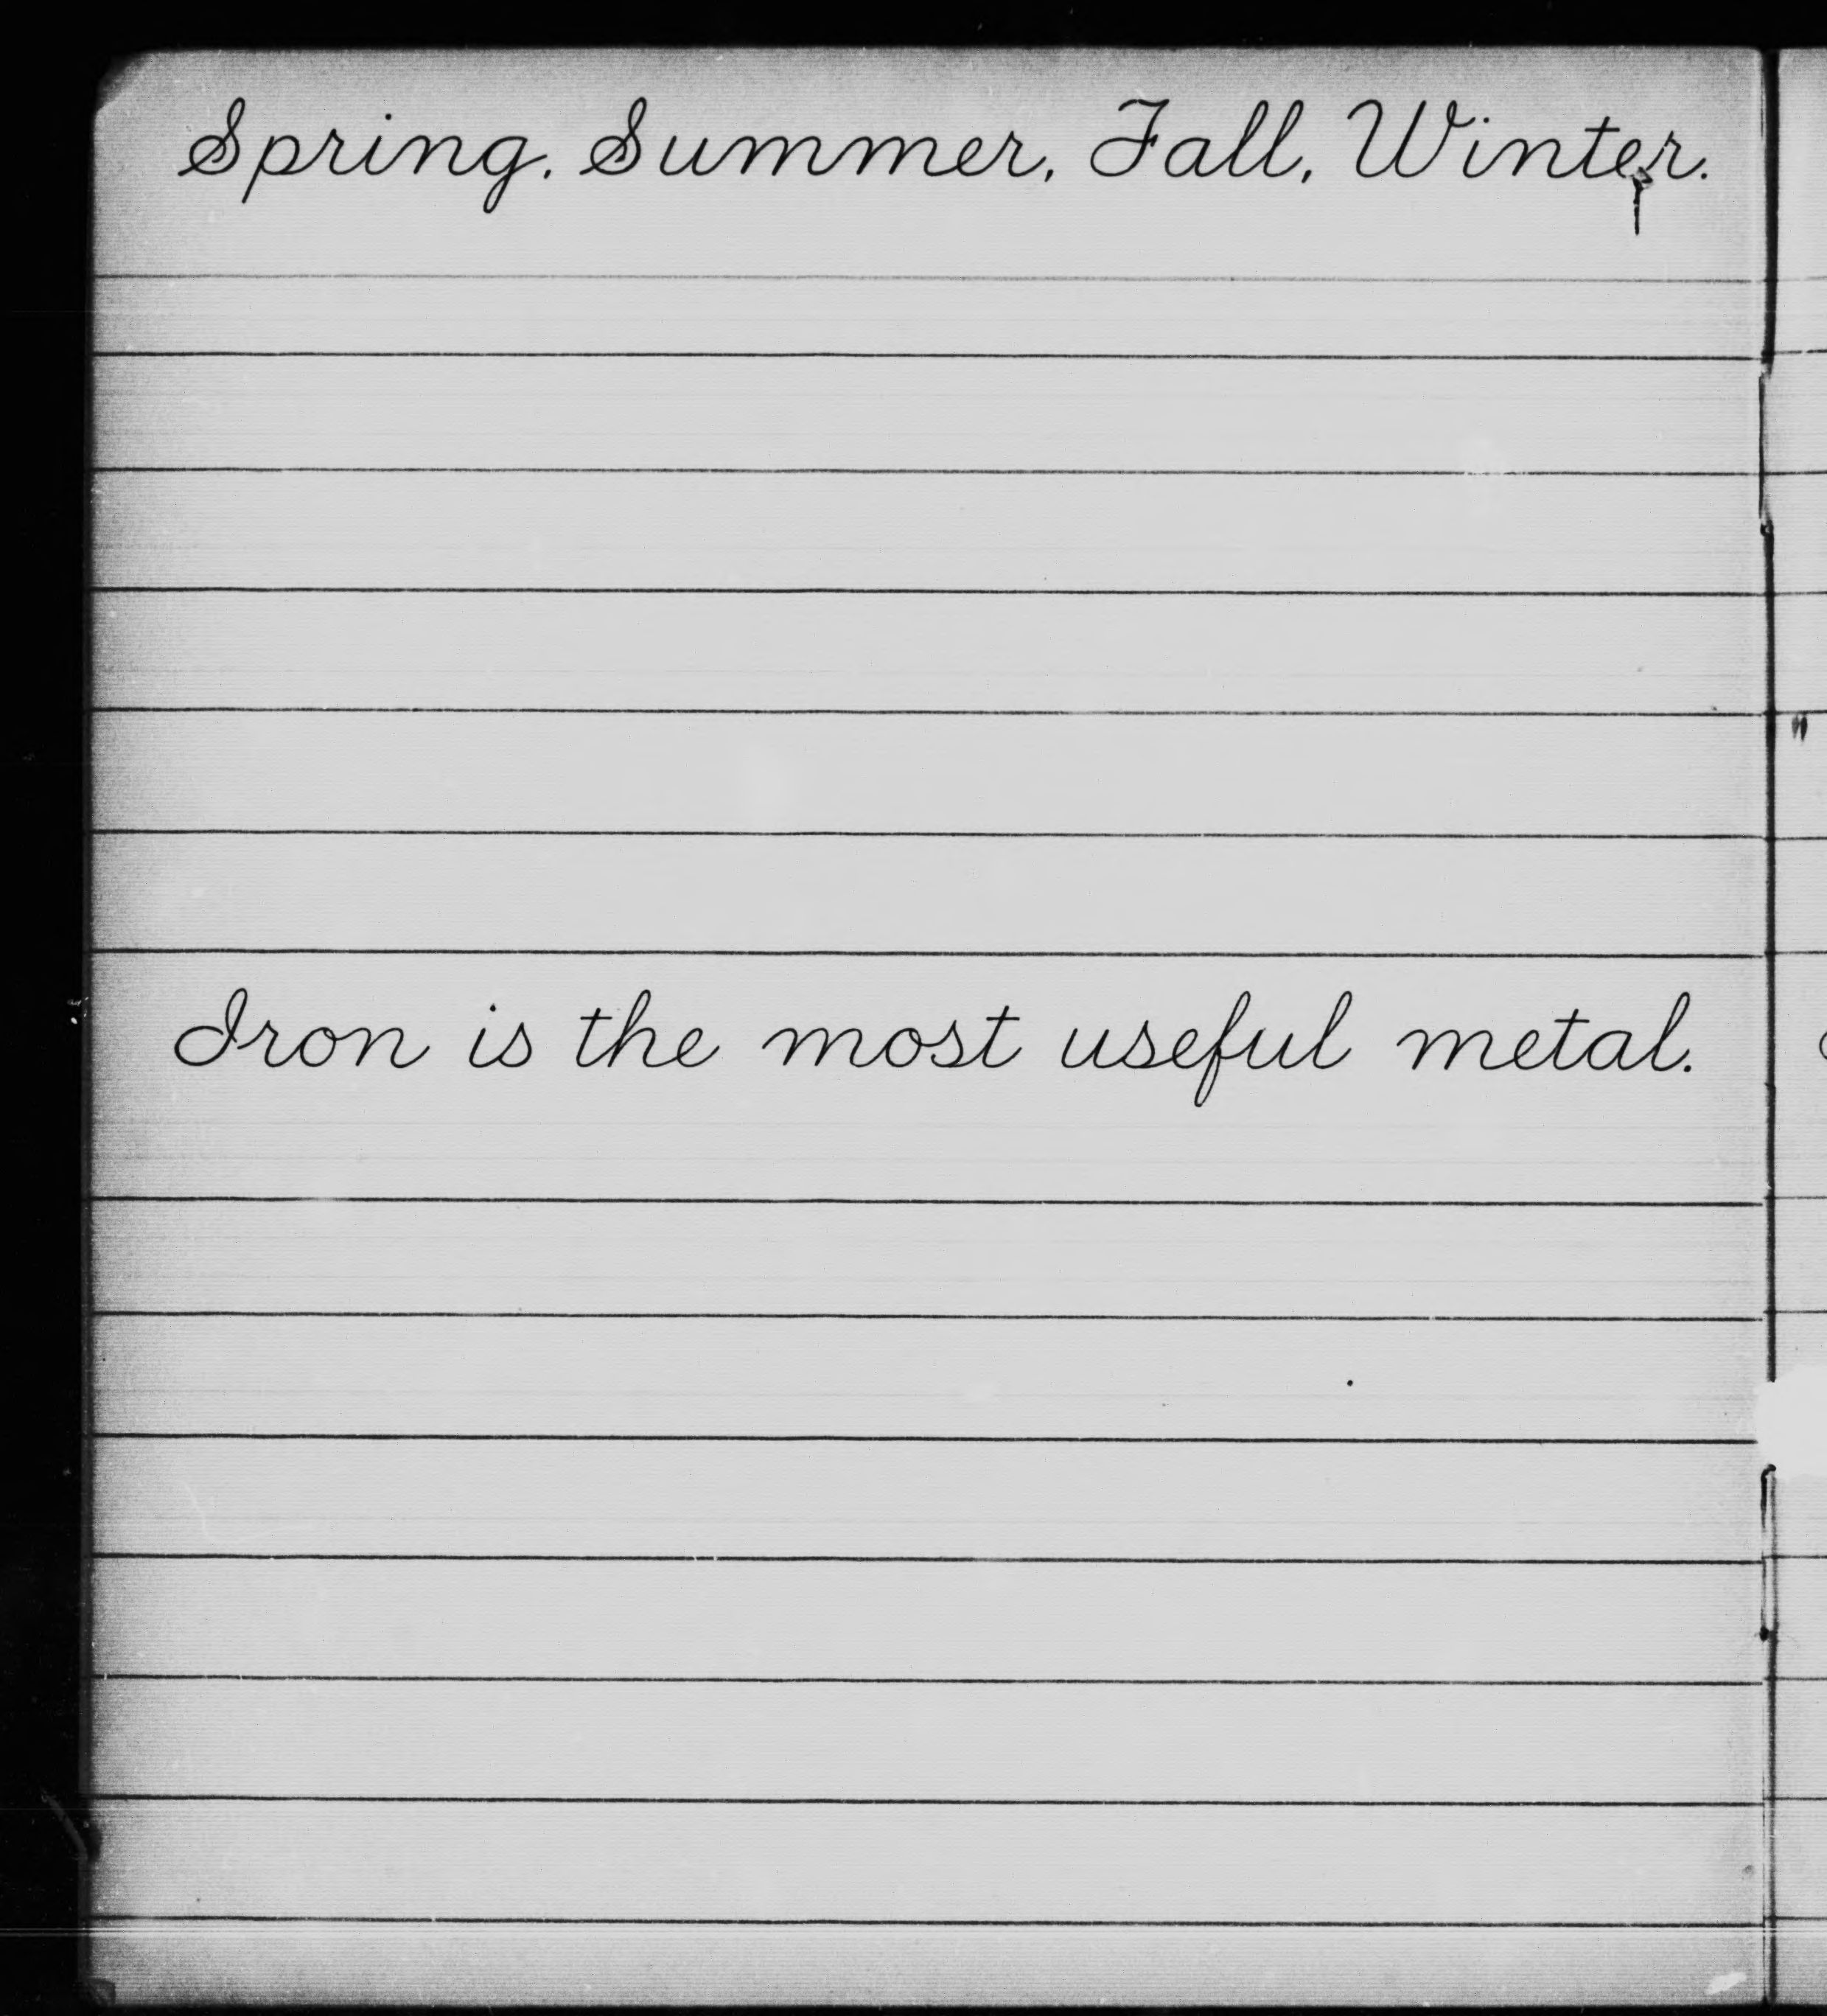 Spring. Summer. Fall. Winter.
Iron is the most useful metal.